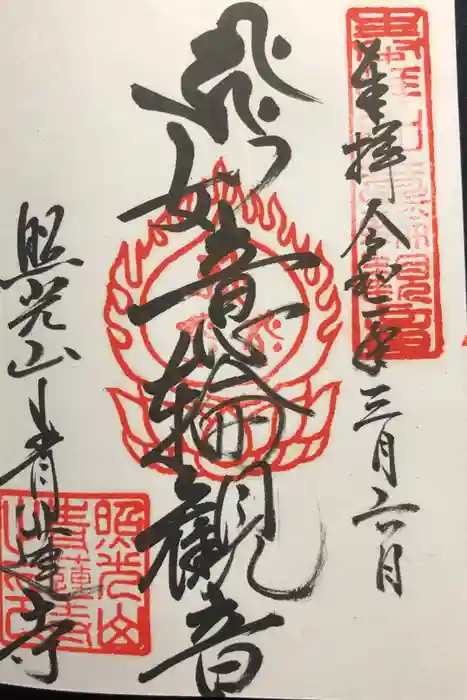 奉拝 令和二年 三月六日
如意輪観音
照光山 青蓮寺
照光山
青蓮寺